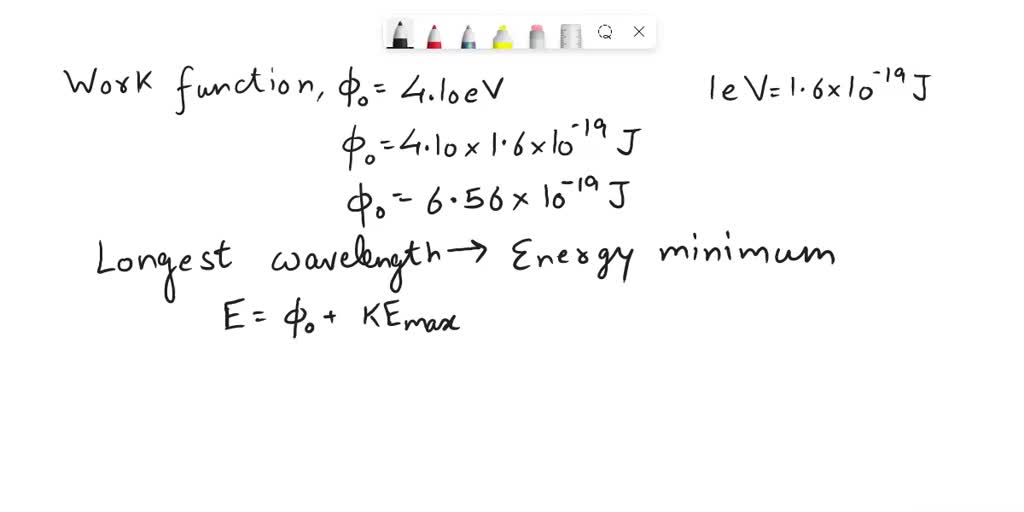 Work function, ϕ₀ = 4.10eV
1eV = 1.6×10⁻¹⁹ J
ϕ₀ = 4.10 × 1.6×10⁻¹⁹ J
ϕ₀ = 6.56 × 10⁻¹⁹ J
Longest wavelength → Energy minimum
E = ϕ₀ + KEmax